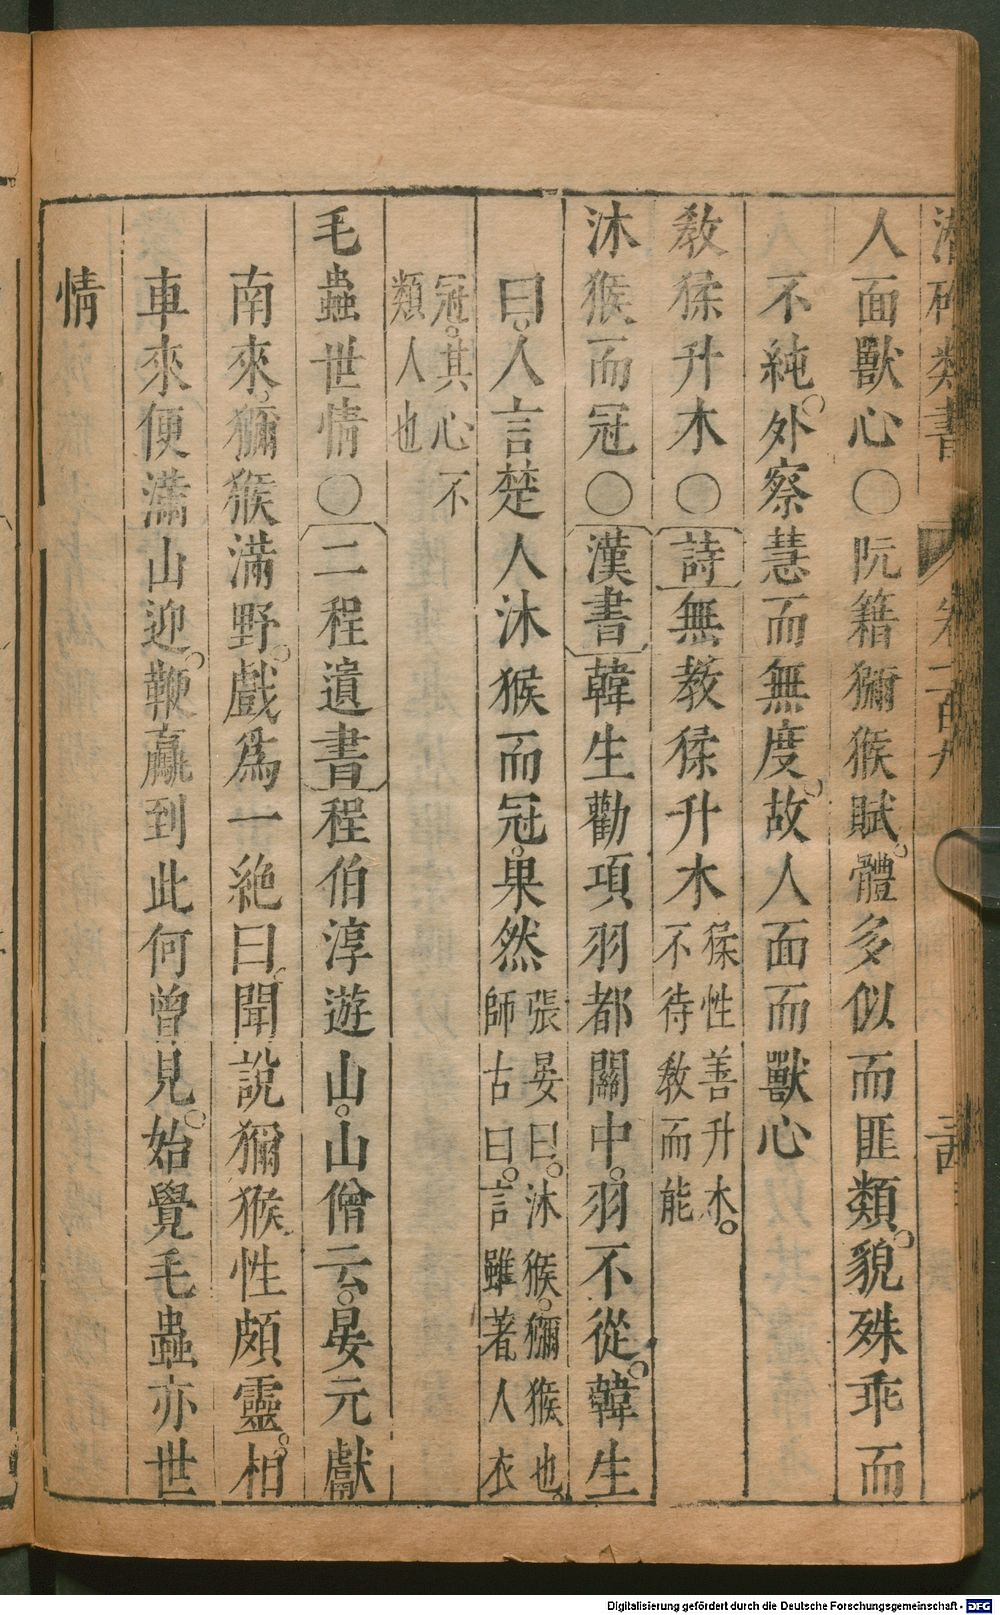 潛確類書 卷一百九
人面獸心〇阮籍獼猴賦體多似而匪類貌殊乖而
不純外察慧而無度故人面而獸心
教猱升木〇詩無教猱升木猱性善升木不待教而能
沐猴而冠〇漢書韓生勸項羽都關中羽不從韓生
曰人言楚人沐猴而冠果然張晏曰沐猴獼猴也師古曰言雖著人衣
冠其心不類人也
毛蟲世情〇二程遺書程伯淳遊山山僧云晏元獻
南來獼猴滿野戲爲一絶曰聞說獼猴性頗靈相
車來便滿山迎鞭羸到此何曾見始覺毛蟲亦世
情
Digitalisierung gefördert durch die Deutsche Forschungsgemeinschaft - DFG